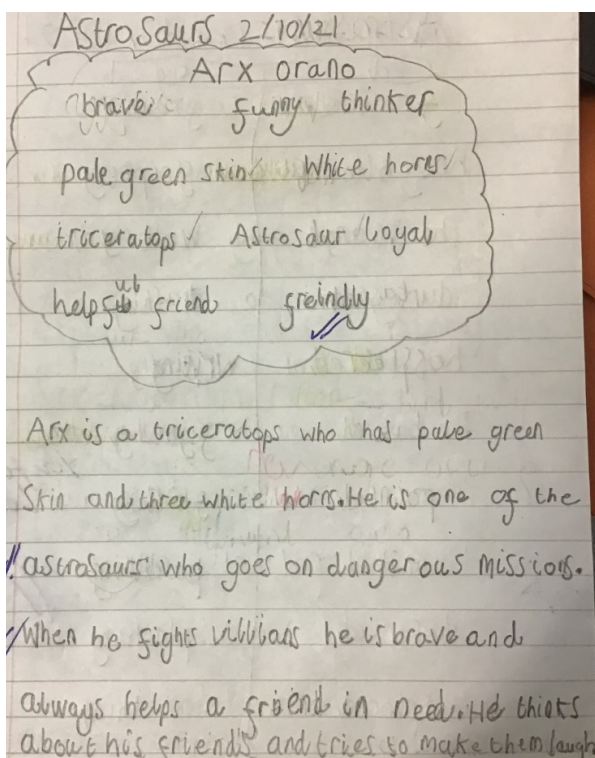 Astrosaurs 2/10/21
Arx orano
brave funny thinker
pale green skin White hores
triceratops Astrosaur loyal
helpful friend freindly
Arx is a triceratops who has pale green
Skin and three white horns. He is one of the
astrosaurs who goes on dangerous missions.
When he fights villians he is brave and
always helps a friend in need. He thinks
about his friends and tries to make them laugh